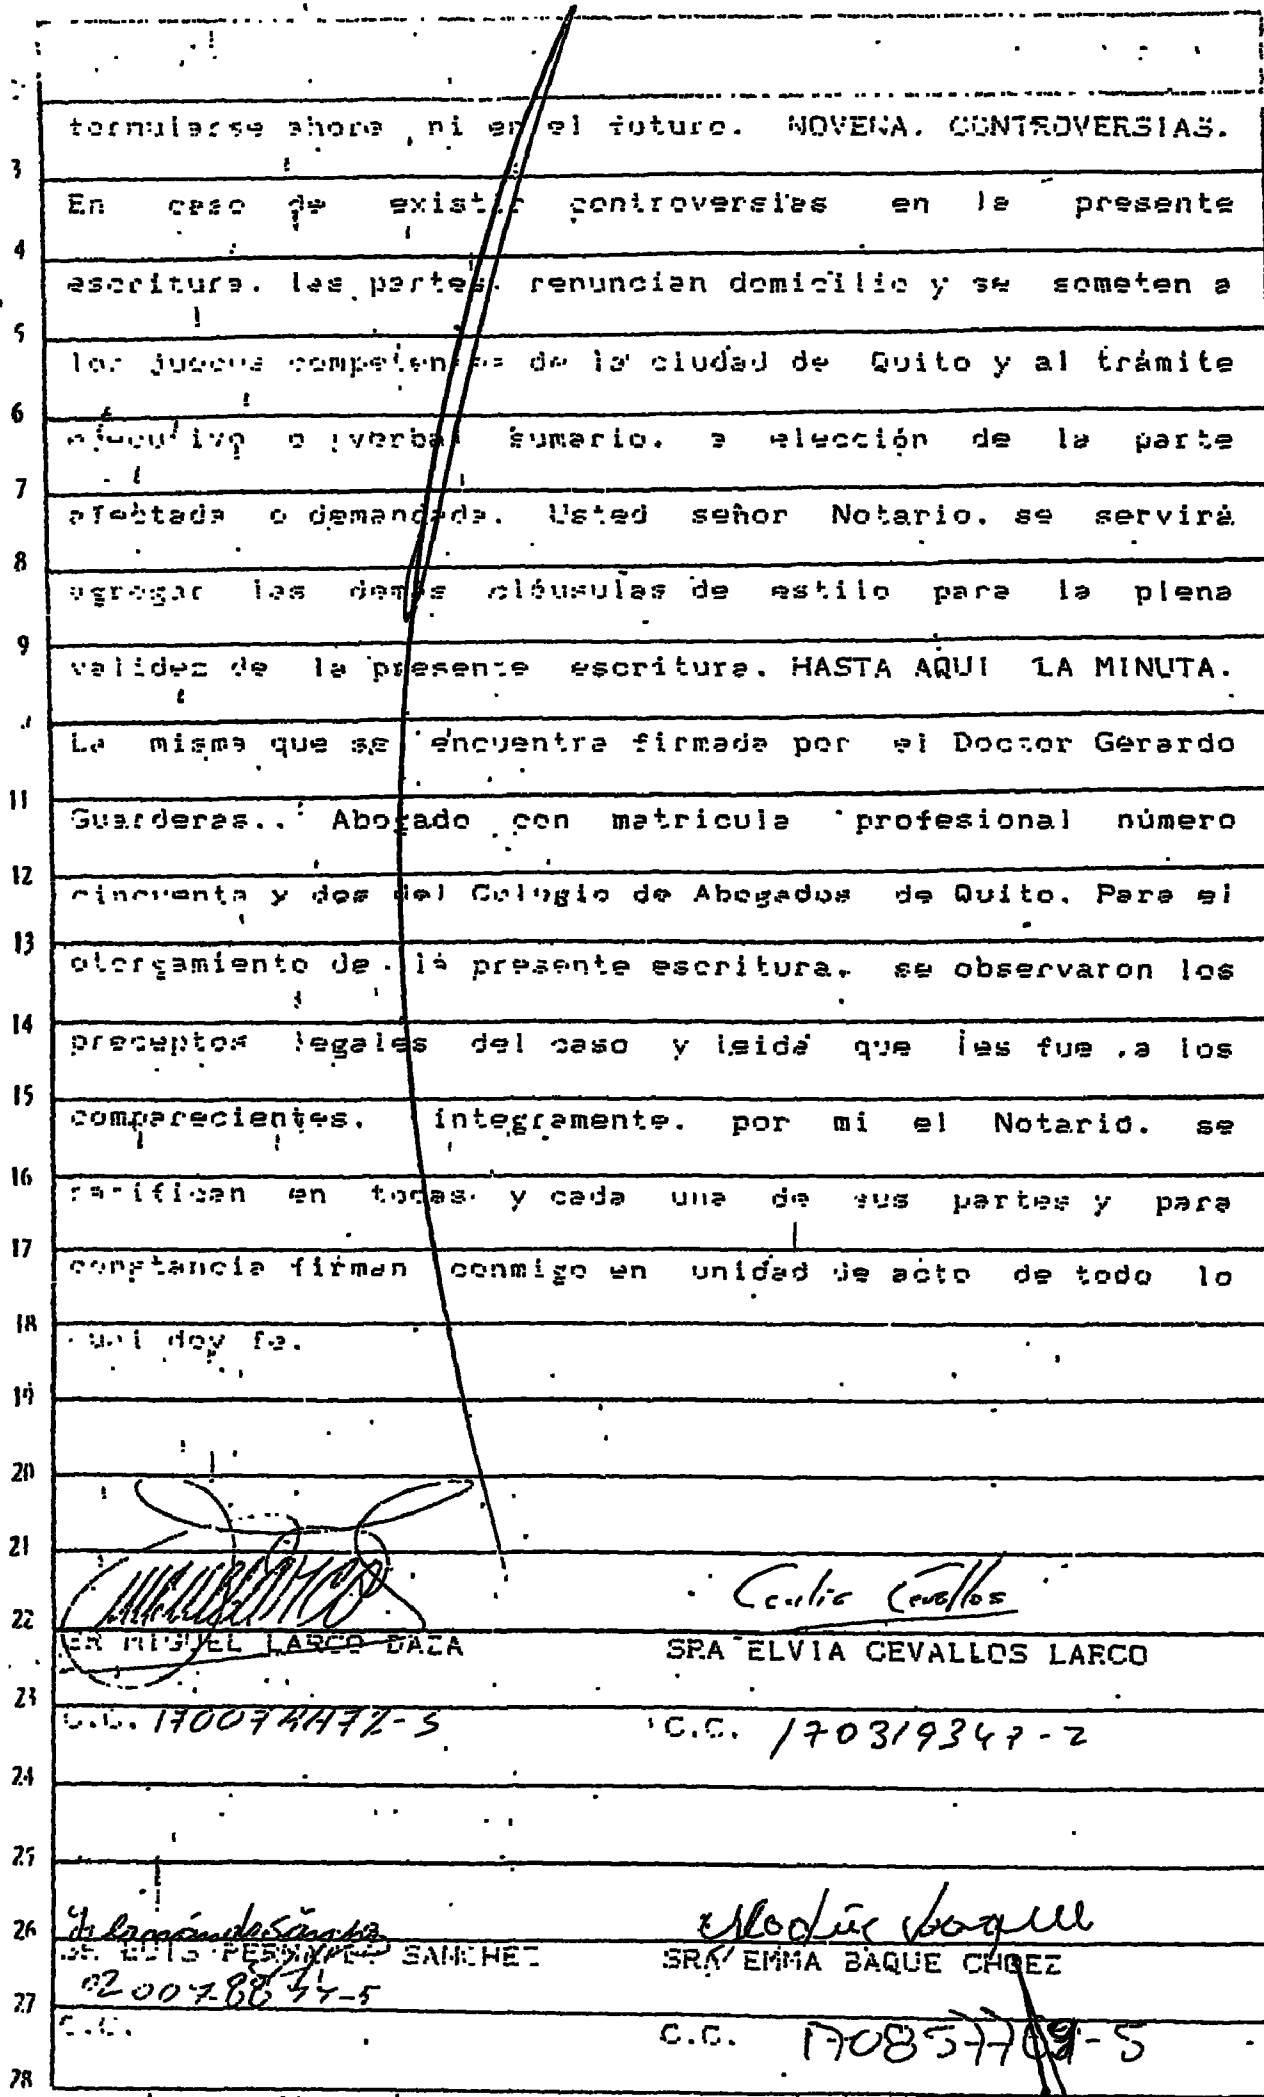 formularse ahora, ni en el futuro. NOVENA. CONTROVERSIAS.
3
En caso de existir controversias en la presente
4
escritura. las partes. renuncian domicilio y se someten a
5
los jueces competentes de la ciudad de Quito y al trámite
6
ejecutivo o verbal sumario. a elección de la parte
7
afectada o demandada. Usted señor Notario. se servirá
8
agregar las demás cláusulas de estilo para la plena
9
validez de la presente escritura. HASTA AQUI LA MINUTA.
La misma que se encuentra firmada por el Doctor Gerardo
11
Guarderas.. Abogado con matricula profesional número
12
cincuenta y dos del Colegio de Abogados de Quito. Para el
13
otorgamiento de la presente escritura. se observaron los
14
preceptos legales del caso y leida que les fue a los
15
comparecientes. integramente. por mi el Notario. se
16
ratifican en todas y cada una de sus partes y para
17
constancia firman conmigo en unidad de acto de todo lo
18
cual doy fe.
19
20
21
22
SR MIGUEL LARCO DAZA SRA ELVIA CEVALLOS LARCO
23
C.C. C.C. 170319347-2
24
25
26
SR LUIS FERNANDEZ SANCHEZ SRA EMMA BAQUE CHOEZ
27
C.C. C.C.
28